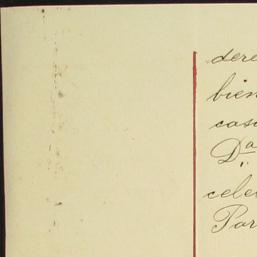 dere
bien
caso
Dª
cele
Par